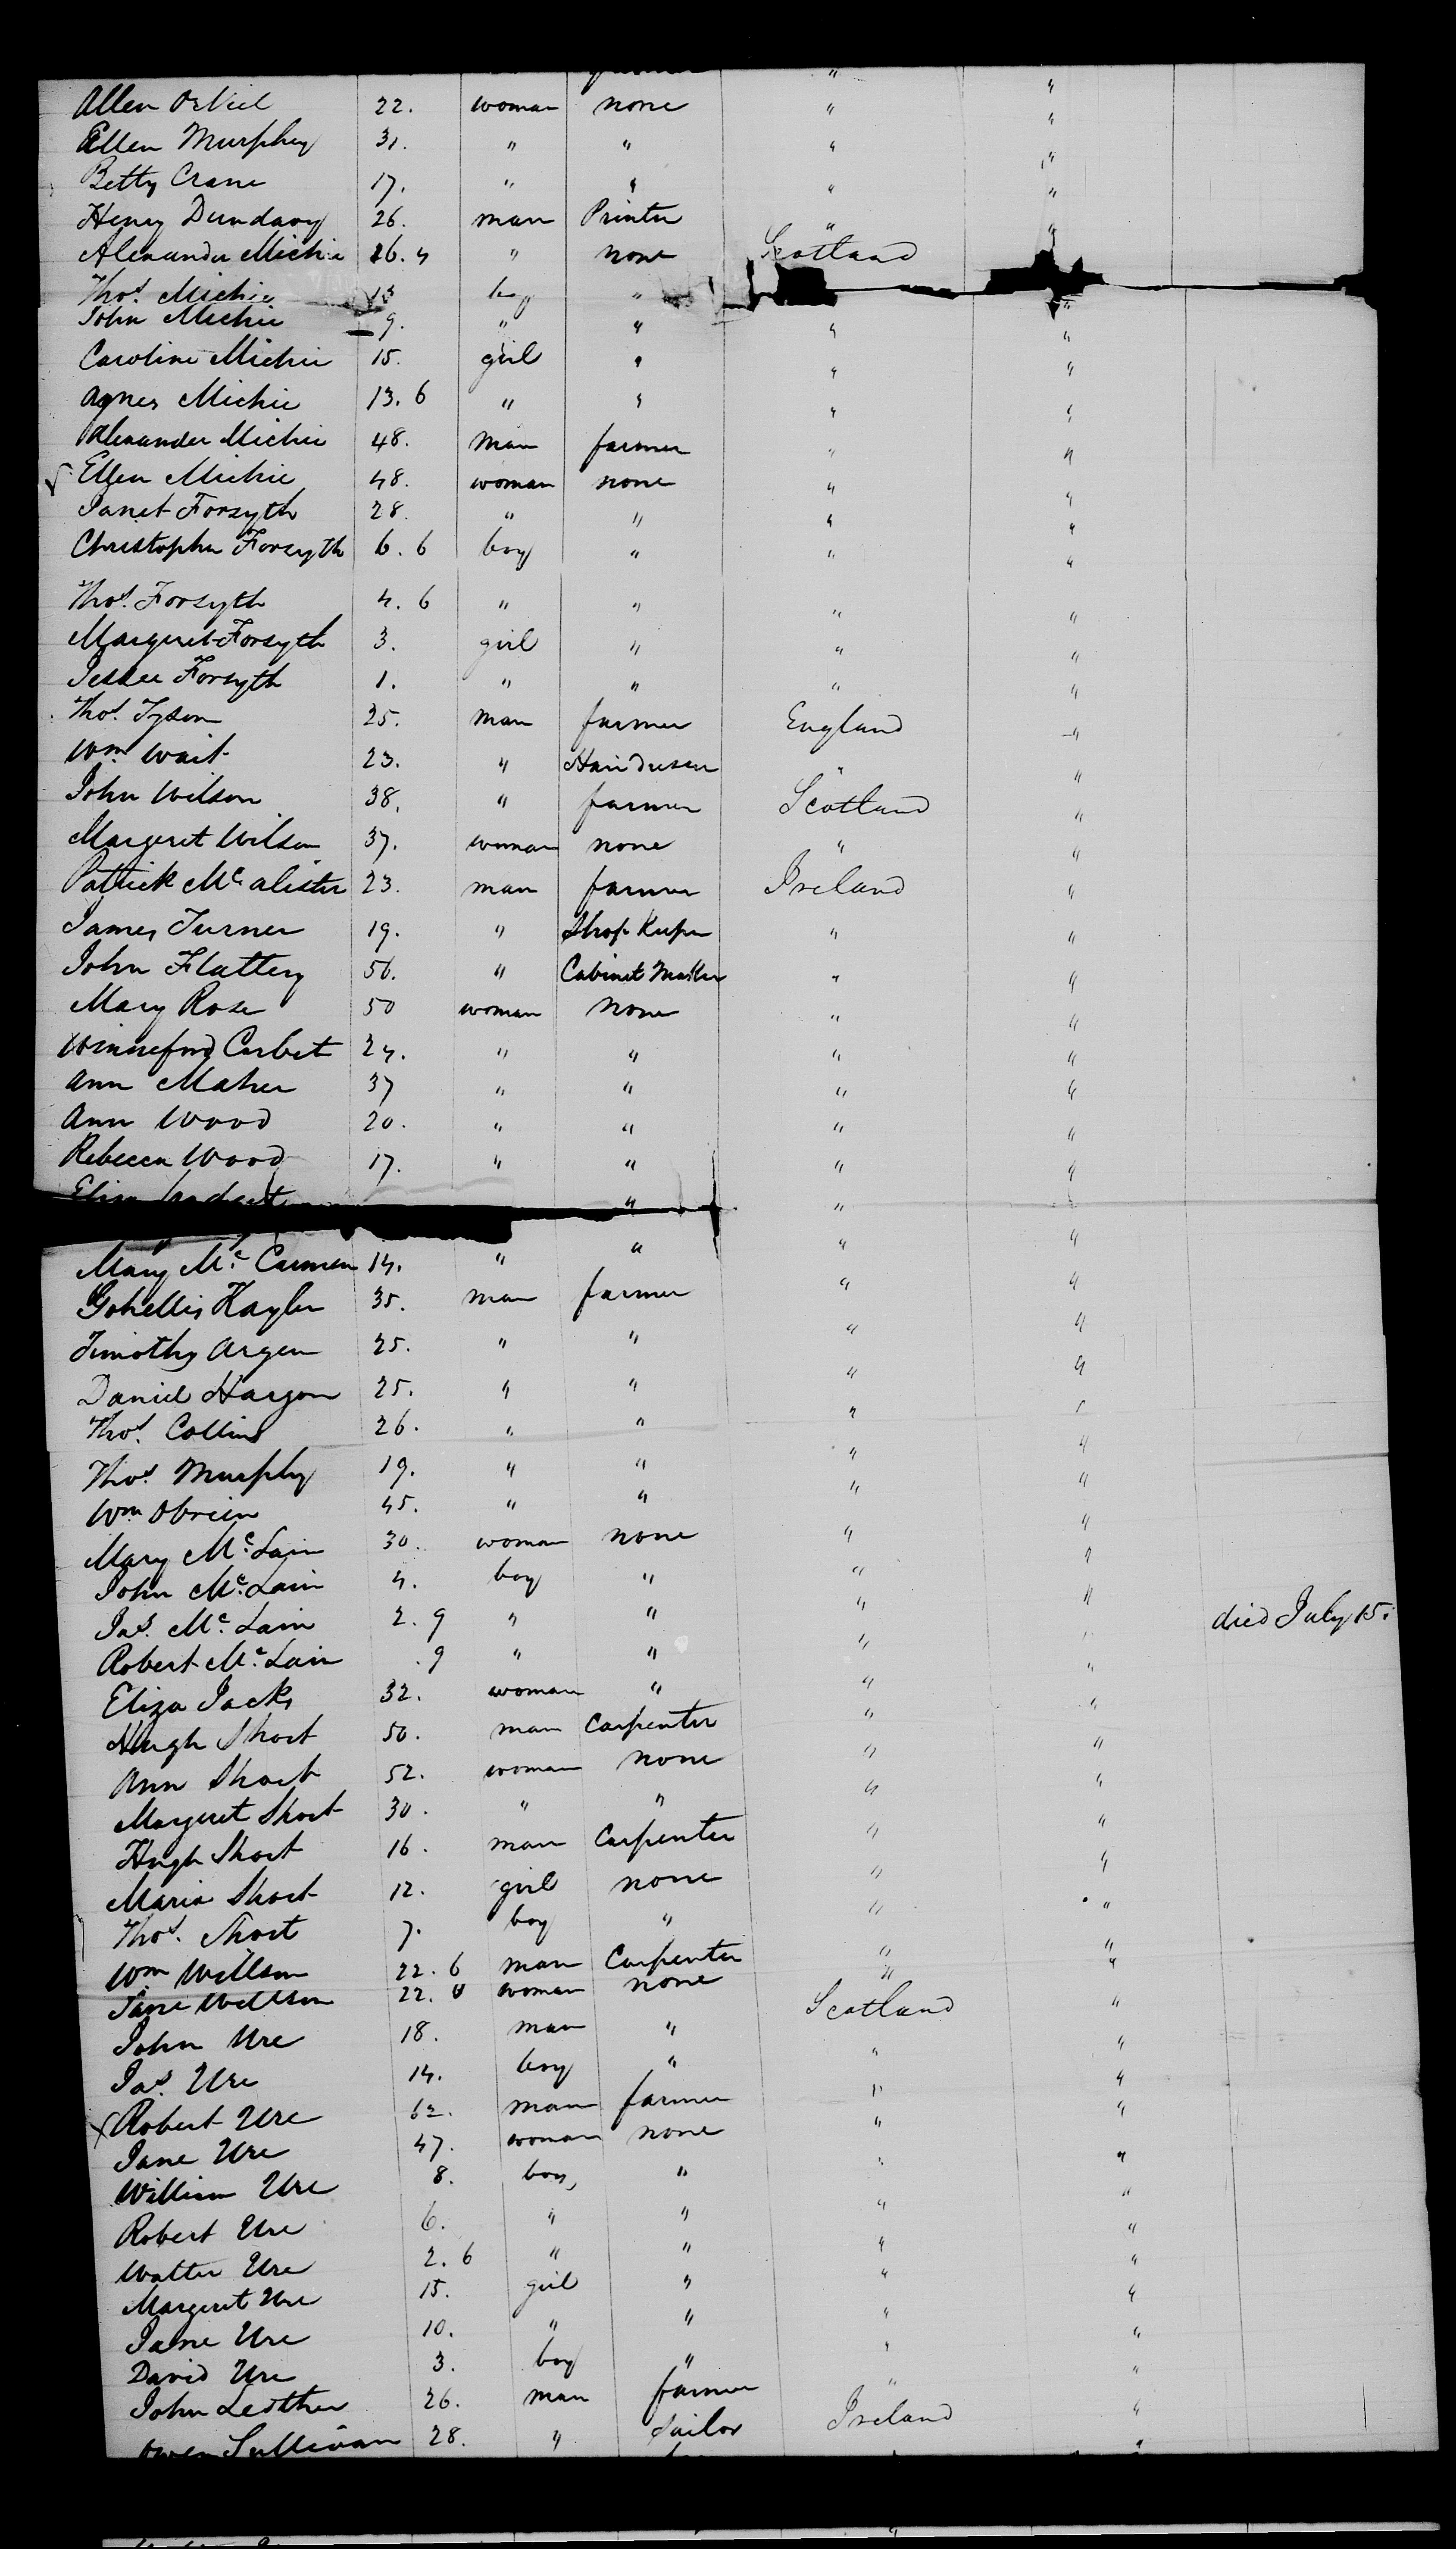 " "
Allen O Neil 22. woman none " "
Ellen Murphy 31. " " " "
Betty Crane 17. " " " "
Henry Dundary 26. man Printer " "
Alexander Michie 16. 4 " none Scotland
Thos. Michie 13 boy "
John Michie 9. " " " "
Caroline Michie 15. girl " " "
Agnes Michie 13. 6 " " " "
Alexander Michie 48. man farmer " "
Ellen Michie 48. woman none " "
Janet Forsyth 28. " " " "
Christopher Forsyth 6. 6 boy " " "
Thos. Forsyth 4. 6 " " " "
Margeret Forsyth 3. girl " " "
Jessee Forsyth 1. " " " "
Thos. Tyson 25. man farmer England "
Wm. Wait 23. " Hairdresser " "
John Wilson 38. " farmer Scotland "
Margeret Wilson 37. woman none " "
Patrick Mc. alister 23. man farmer Ireland "
James Turner 19. " Shop Keeper " "
John Flattery 56. " Cabinet Maker " "
Mary Rose 50 woman none " "
Winneford Corbet 24. " " " "
Ann Maher 37 " " " "
Ann Wood 20. " " " "
Rebecca Wood 17. " " " "
Eliza " "
Mary Mc. Carmen 14. " " " "
Gohellis Kayler 35. man farmer " "
Timothy Argen 25. " " " "
Daniel Hargon 25. " " " "
Thos. Collins 26. " " " "
Thos. Murphy 19. " " " "
Wm Obrien 45. " " " "
Mary Mc. Lain 30. woman none " "
John Mc. Lain 4. boy " " "
Jas. Mc. Lain 2. 9 " " " " died July 15.
Robert Mc. Lain . 9 " " " "
Eliza Jacks 32. woman " " "
Hugh Short 50. man Carpenter " "
Ann Short 52. woman none " "
Margeret Short 30. " " " "
Hugh Short 16. man Carpenter " "
Maria Short 12. girl none " "
Thos. Short 7. boy " " "
Wm Willson 22. 6 man Carpenter " "
Jane Willson 22. woman none " "
John Ure 18. man " Scotland "
Jas. Ure 14. boy " " "
Robert Ure 62. man farmer " "
Jane Ure 47. woman none " "
William Ure 8. boy " " "
Robert Ure 6. " " " "
Walter Ure 2. 6 " " " "
Margeret Ure 15. girl " " "
Jane Ure 10. " " " "
David Ure 3. boy " " "
John Leother 26. man farmer " "
Owen Sullivan 28. " Sailor Ireland "